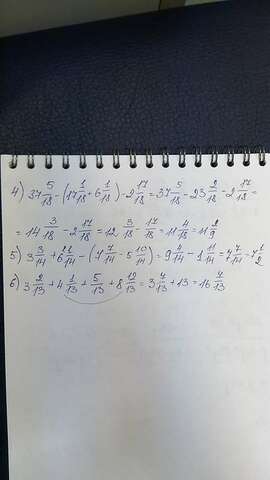 4) 37 5/18 - (17 1/18 + 6 1/18) - 2 17/18 = 37 5/18 - 23 2/18 - 2 17/18 =
= 14 3/18 - 2 17/18 = 12 3/18 - 17/18 = 11 4/18 = 11 2/9
5) 3 3/14 + 6 21/14 - (7 7/14 - 5 10/14) = 9 4/14 - 1 11/14 = 7 7/14 = 7 1/2
6) 3 2/13 + 4 1/13 + 5/13 + 8 12/13 = 3 7/13 + 13 = 16 7/13